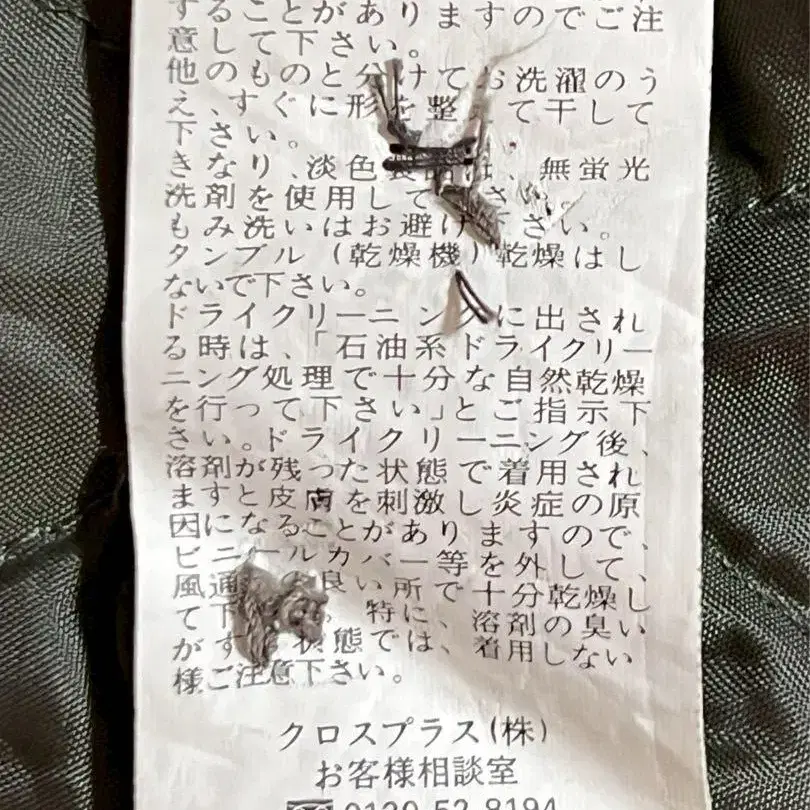 することがありますのでご注
意して下さい。
他のものと分けてお洗濯のう
え、すぐに形を整えて干して
下さい。
きなり、淡色製品は、無蛍光
洗剤を使用して下さい。
もみ洗いはお避け下さい。
タンブル(乾燥機)乾燥はし
ないで下さい。
ドライクリーニングに出され
る時は、「石油系ドライクリー
ニング処理で十分な自然乾燥
を行って下さい」とご指示下
さい。ドライクリーニング後、
溶剤が残った状態で着用され
ますと皮膚を刺激し炎症の原
因になることがありますので、
ビニールカバー等を外して、
風通しの良い所で十分乾燥し
て下 。特に、溶剤の臭い
がす 状態では、着用しない
様ご注意下さい。
クロスプラス(株)
お客様相談室
0120-52-8194